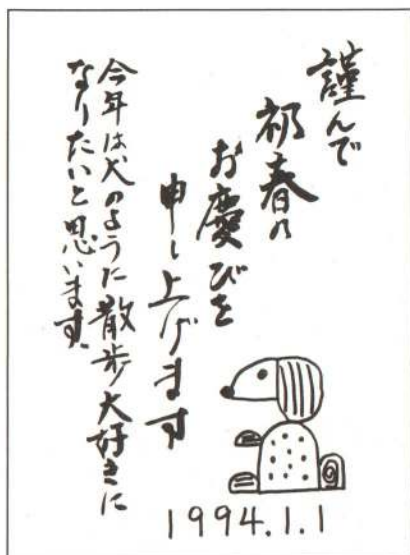 謹んで
初春の
お慶びを
申し上げます
今年は犬のように散歩大好きに
なりたいと思います。
1994.1.1